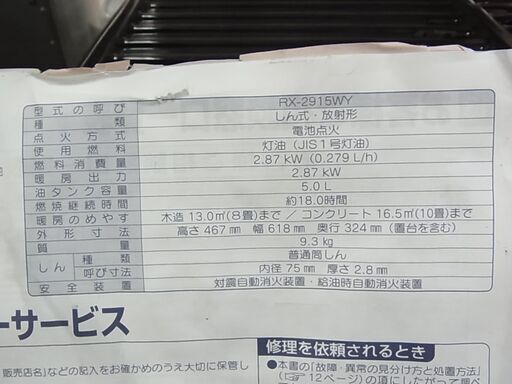 型式の呼び RX-2915WY
種類 しん式・放射形
点火方式 電池点火
使用燃料 灯油（JIS1号灯油）
燃料消費量 2.87 kW（0.279 L/h）
暖房出力 2.87 kW
油タンク容量 5.0 L
燃焼継続時間 約18.0時間
暖房のめやす 木造 13.0㎡（8畳）まで ／ コンクリート 16.5㎡（10畳）まで
外形寸法 高さ 467 mm 幅 618 mm 奥行 324 mm（置台を含む）
質量 9.3 kg
しん 種類 普通筒しん
呼び寸法 内径 75 mm 厚さ 2.8 mm
安全装置 対震自動消火装置・給油時自動消火装置
ーサービス
販売店名）などの記入をお確かめのうえ大切に保管し
修理を依頼されるとき
●本書の「故障・異常の見分け方と処置方法」
（☞12ページ）の項にしたがって調べ